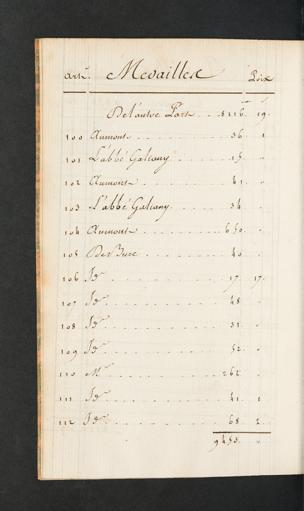 artes. Medailles Prix
De l'autre Part . . 8216. 19.
100 Aumont . . . 36. 1
101 L'abbé Galiany . . 15.
102 Aumont . . . 41.
103 L'abbé Galiany . . 34.
104 Aumont . . . 650.
105 De Bure . . . 40.
106 Id . . . 17. 17.
107 Id . . . 48
108 Id . . . 31.
109 Id . . . 52.
110 Mr . . . 262
111 Id . . . 41. 1
112 Id . . . 68. 2.
9453.